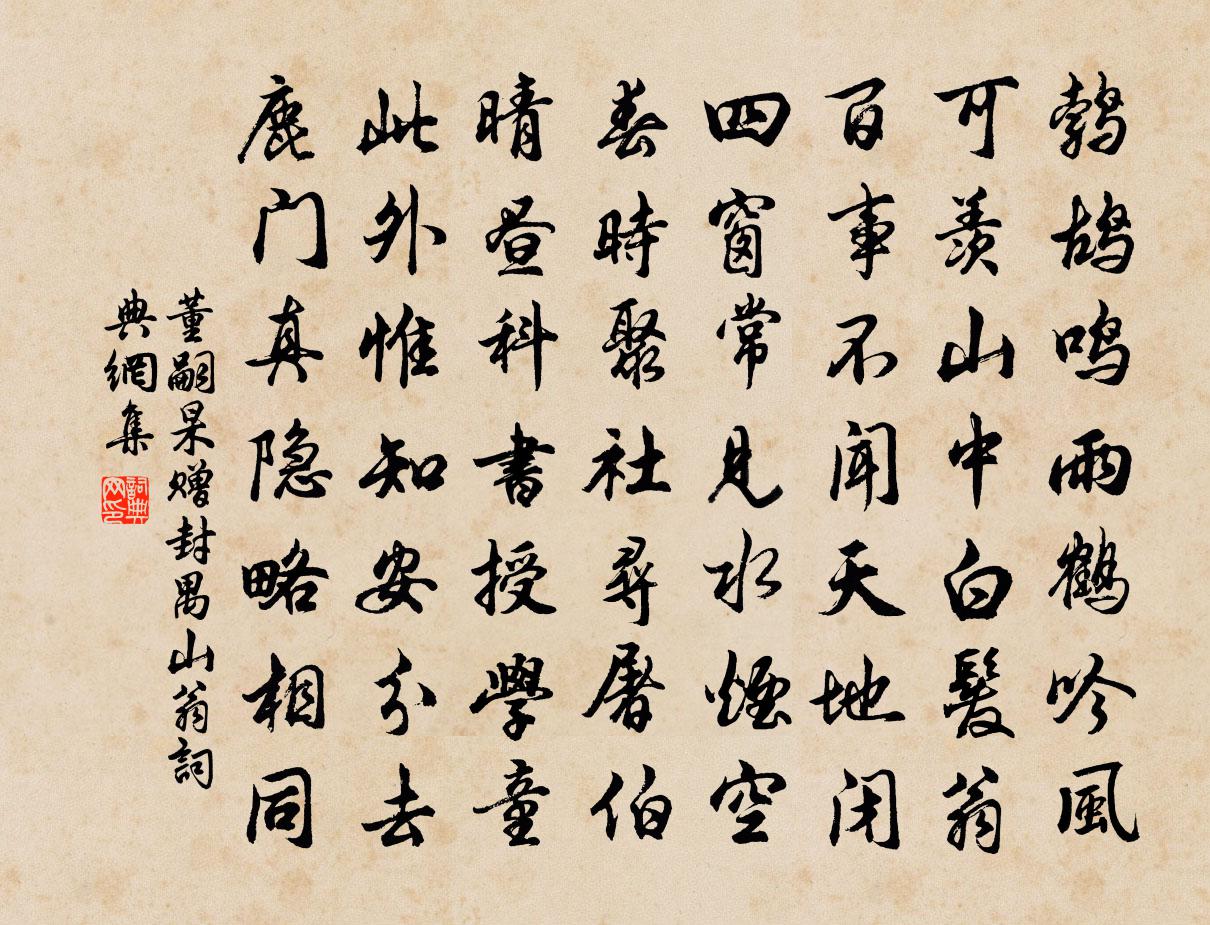 鹁鸪鸣雨鹤吟風
可羨山中白髮翁
百事不闻天地闭
四窗常見水煙空
春時聚社尋屠伯
晴昼科書授學童
此外惟知安分去
鹿门真隐略相同
董嗣杲赠封禺山翁詞
典網集
詞典
网印